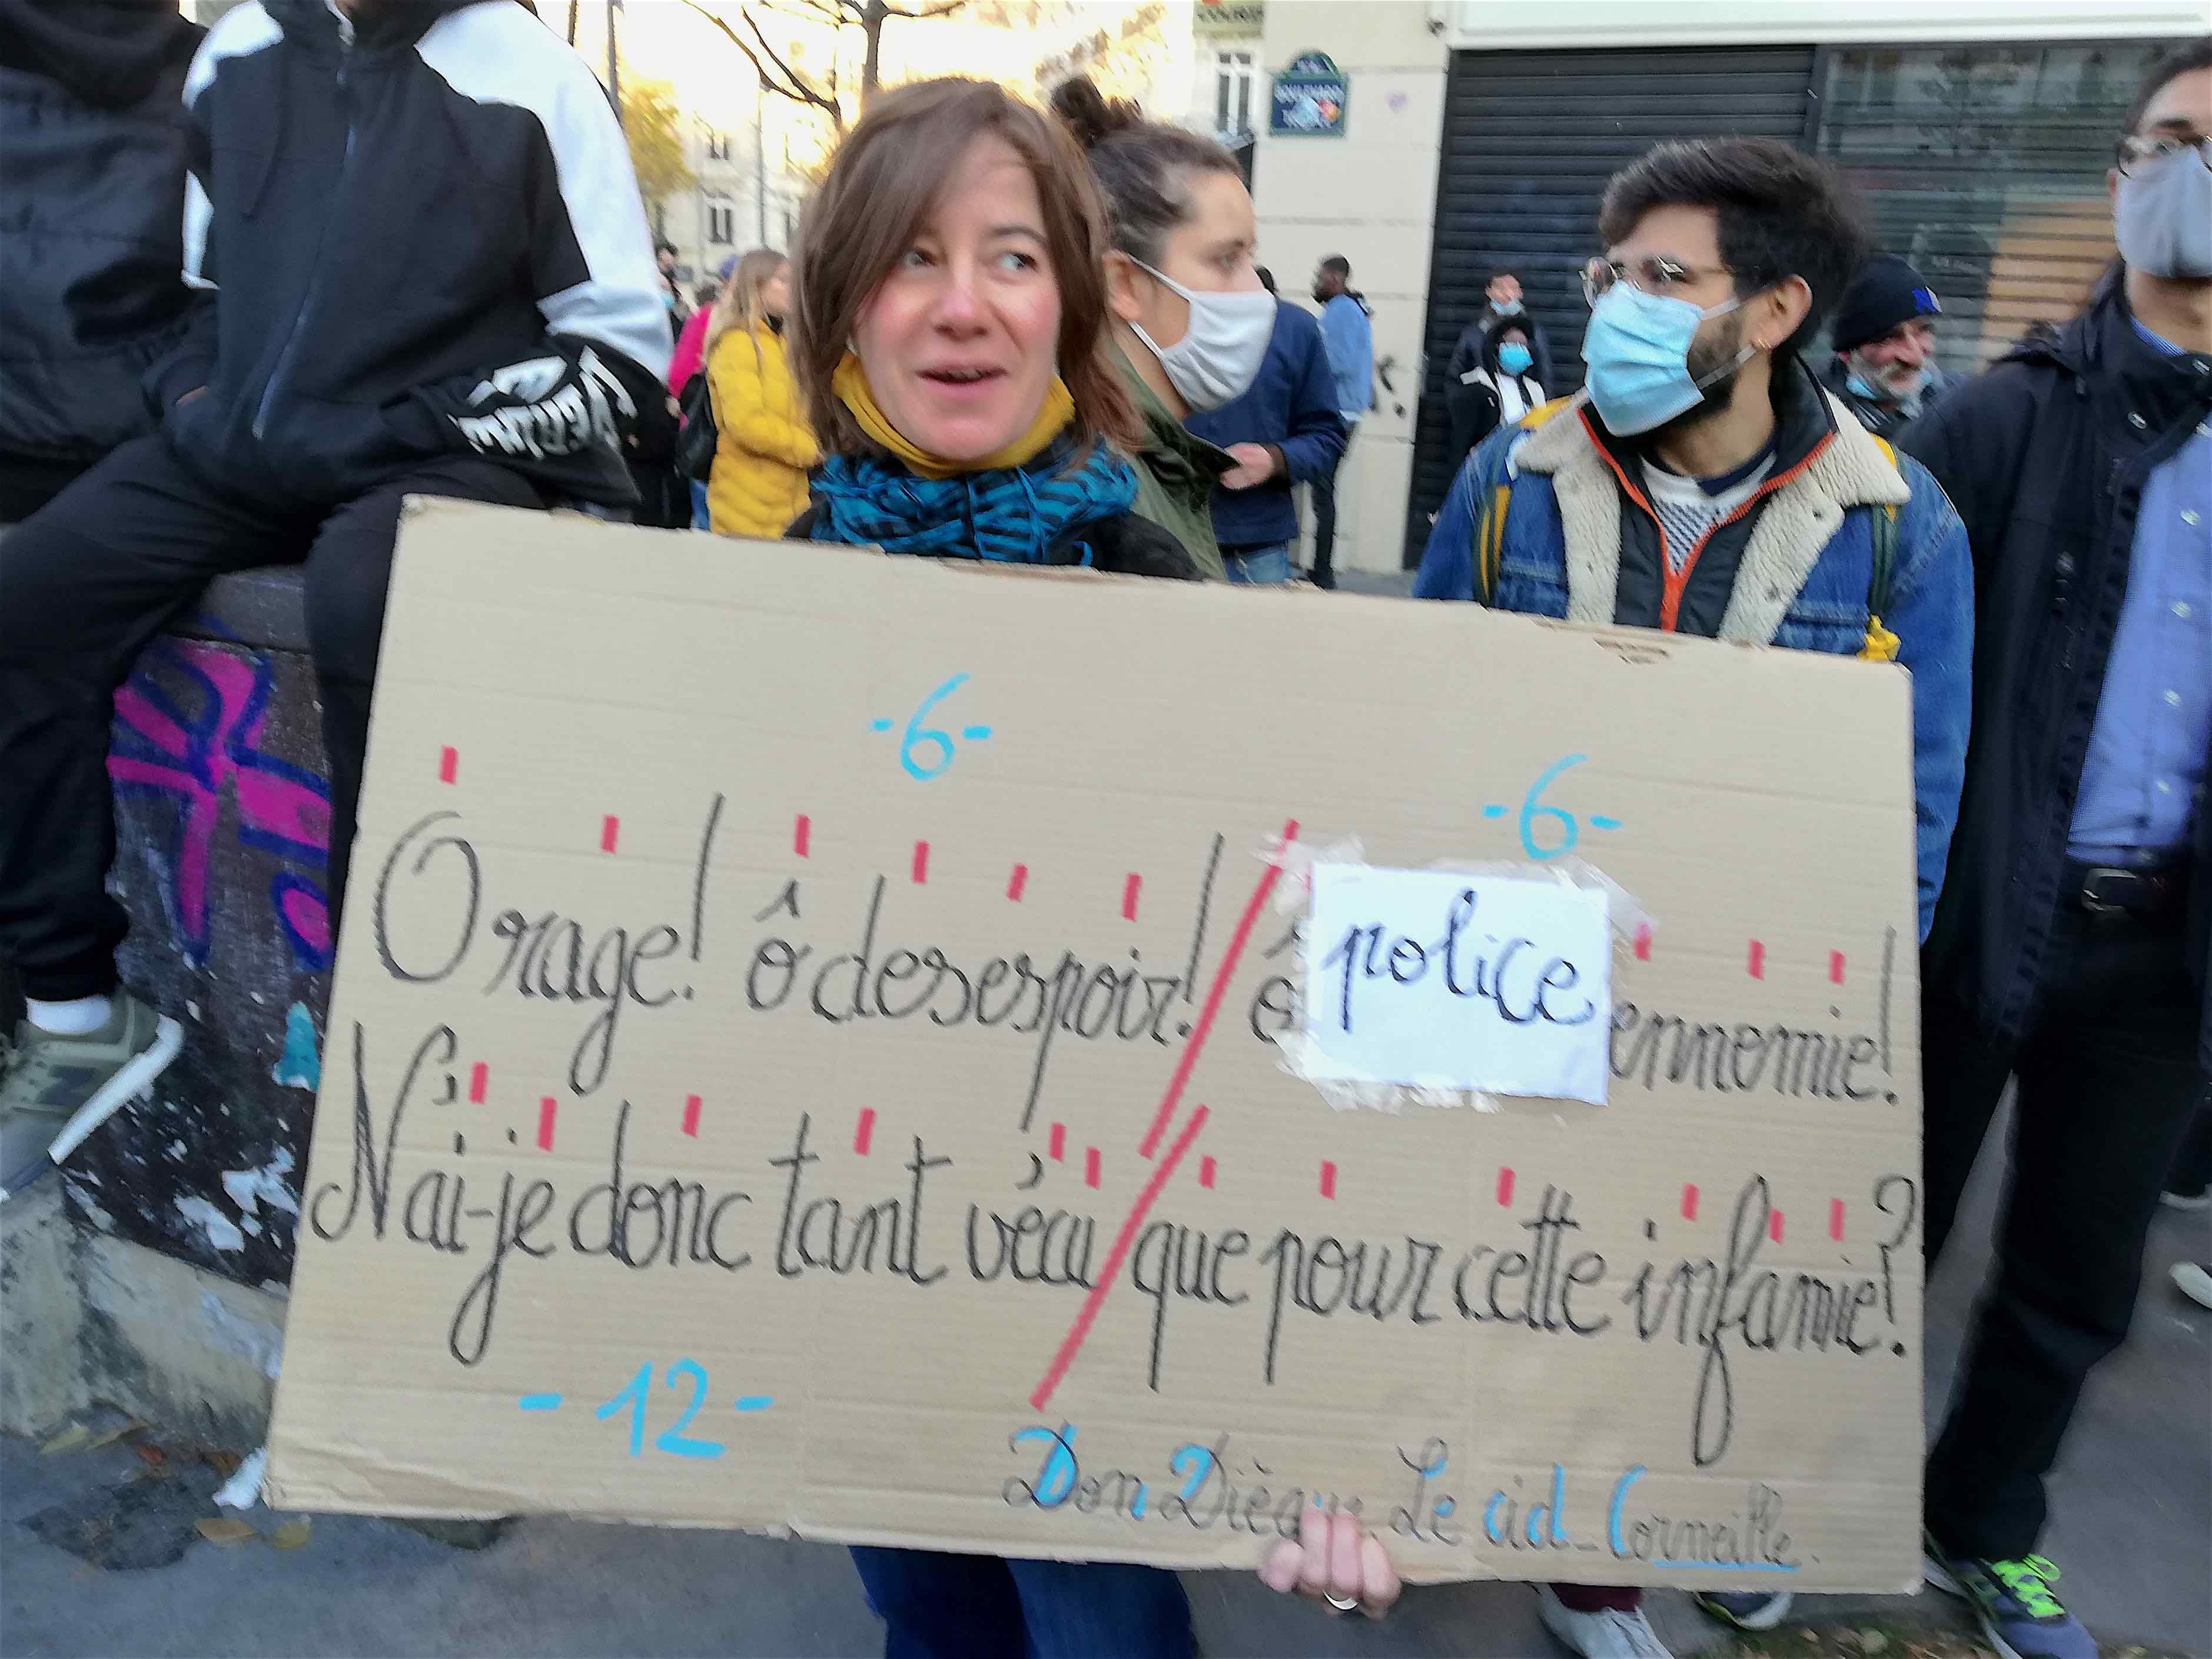 BOULEVARD
-6- -6-
Ô rage! ô desespoir! / ô police ennemie!
N'ai-je donc tant vécu / que pour cette infamie?!
-12-
Don Diègue. Le cid_Corneille.